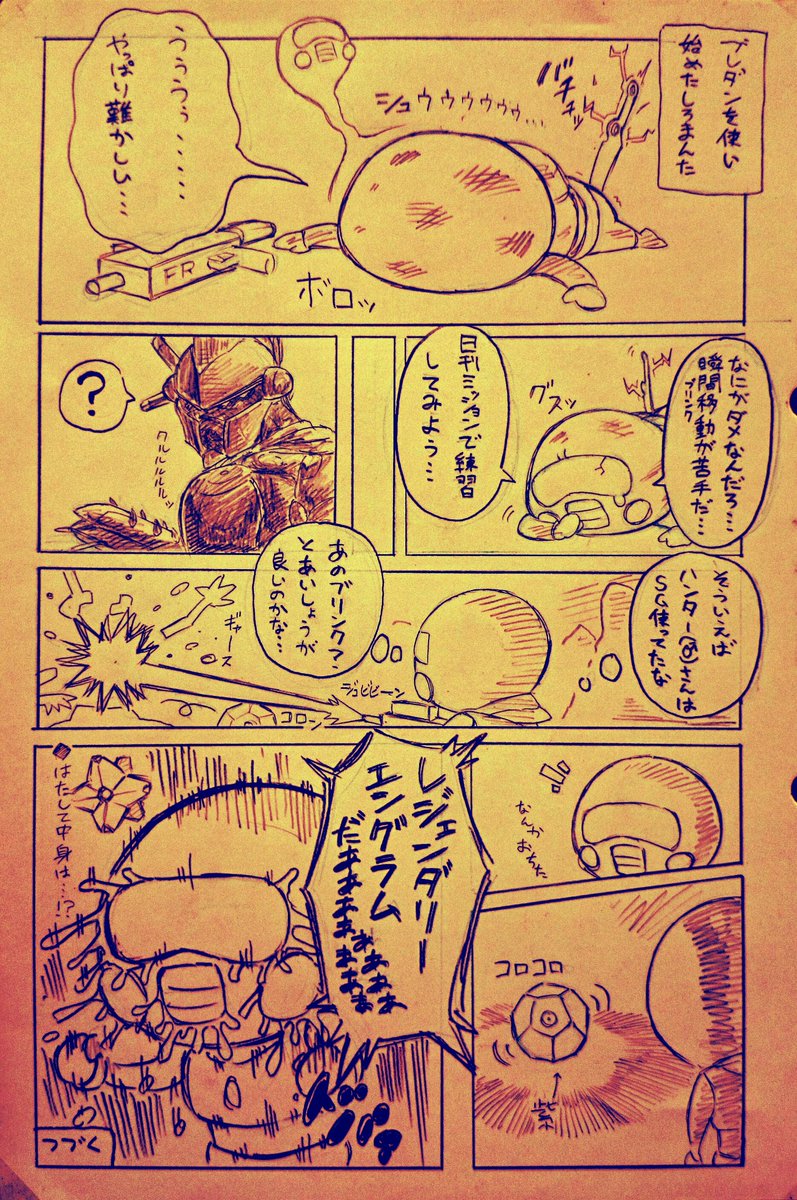 ブレダンを使い
始めたしろまんた
バチチッ
シュウゥゥゥゥゥ…
うううぅ……
やっぱり難かしい…
FR
ボロッ
なにがダメなんだろ…
瞬間移動が苦手だ…
ブリンク
グスッ
日刊ミッションで練習
してみよう…
?
クルルルルッ
そういえば
ハンター(♂)さんは
SG使ってたな
あのブリンクマン
とあいしょうが
良いのかな…
ジュビビーン
コロン
ギャース
!!
なんか
おちた
コロコロ
↑
紫
レジェンダリー
エングラム
だぁぁぁぁぁぁぁぁぁぁぁぁ
◆はたして中身は…!?
つづく